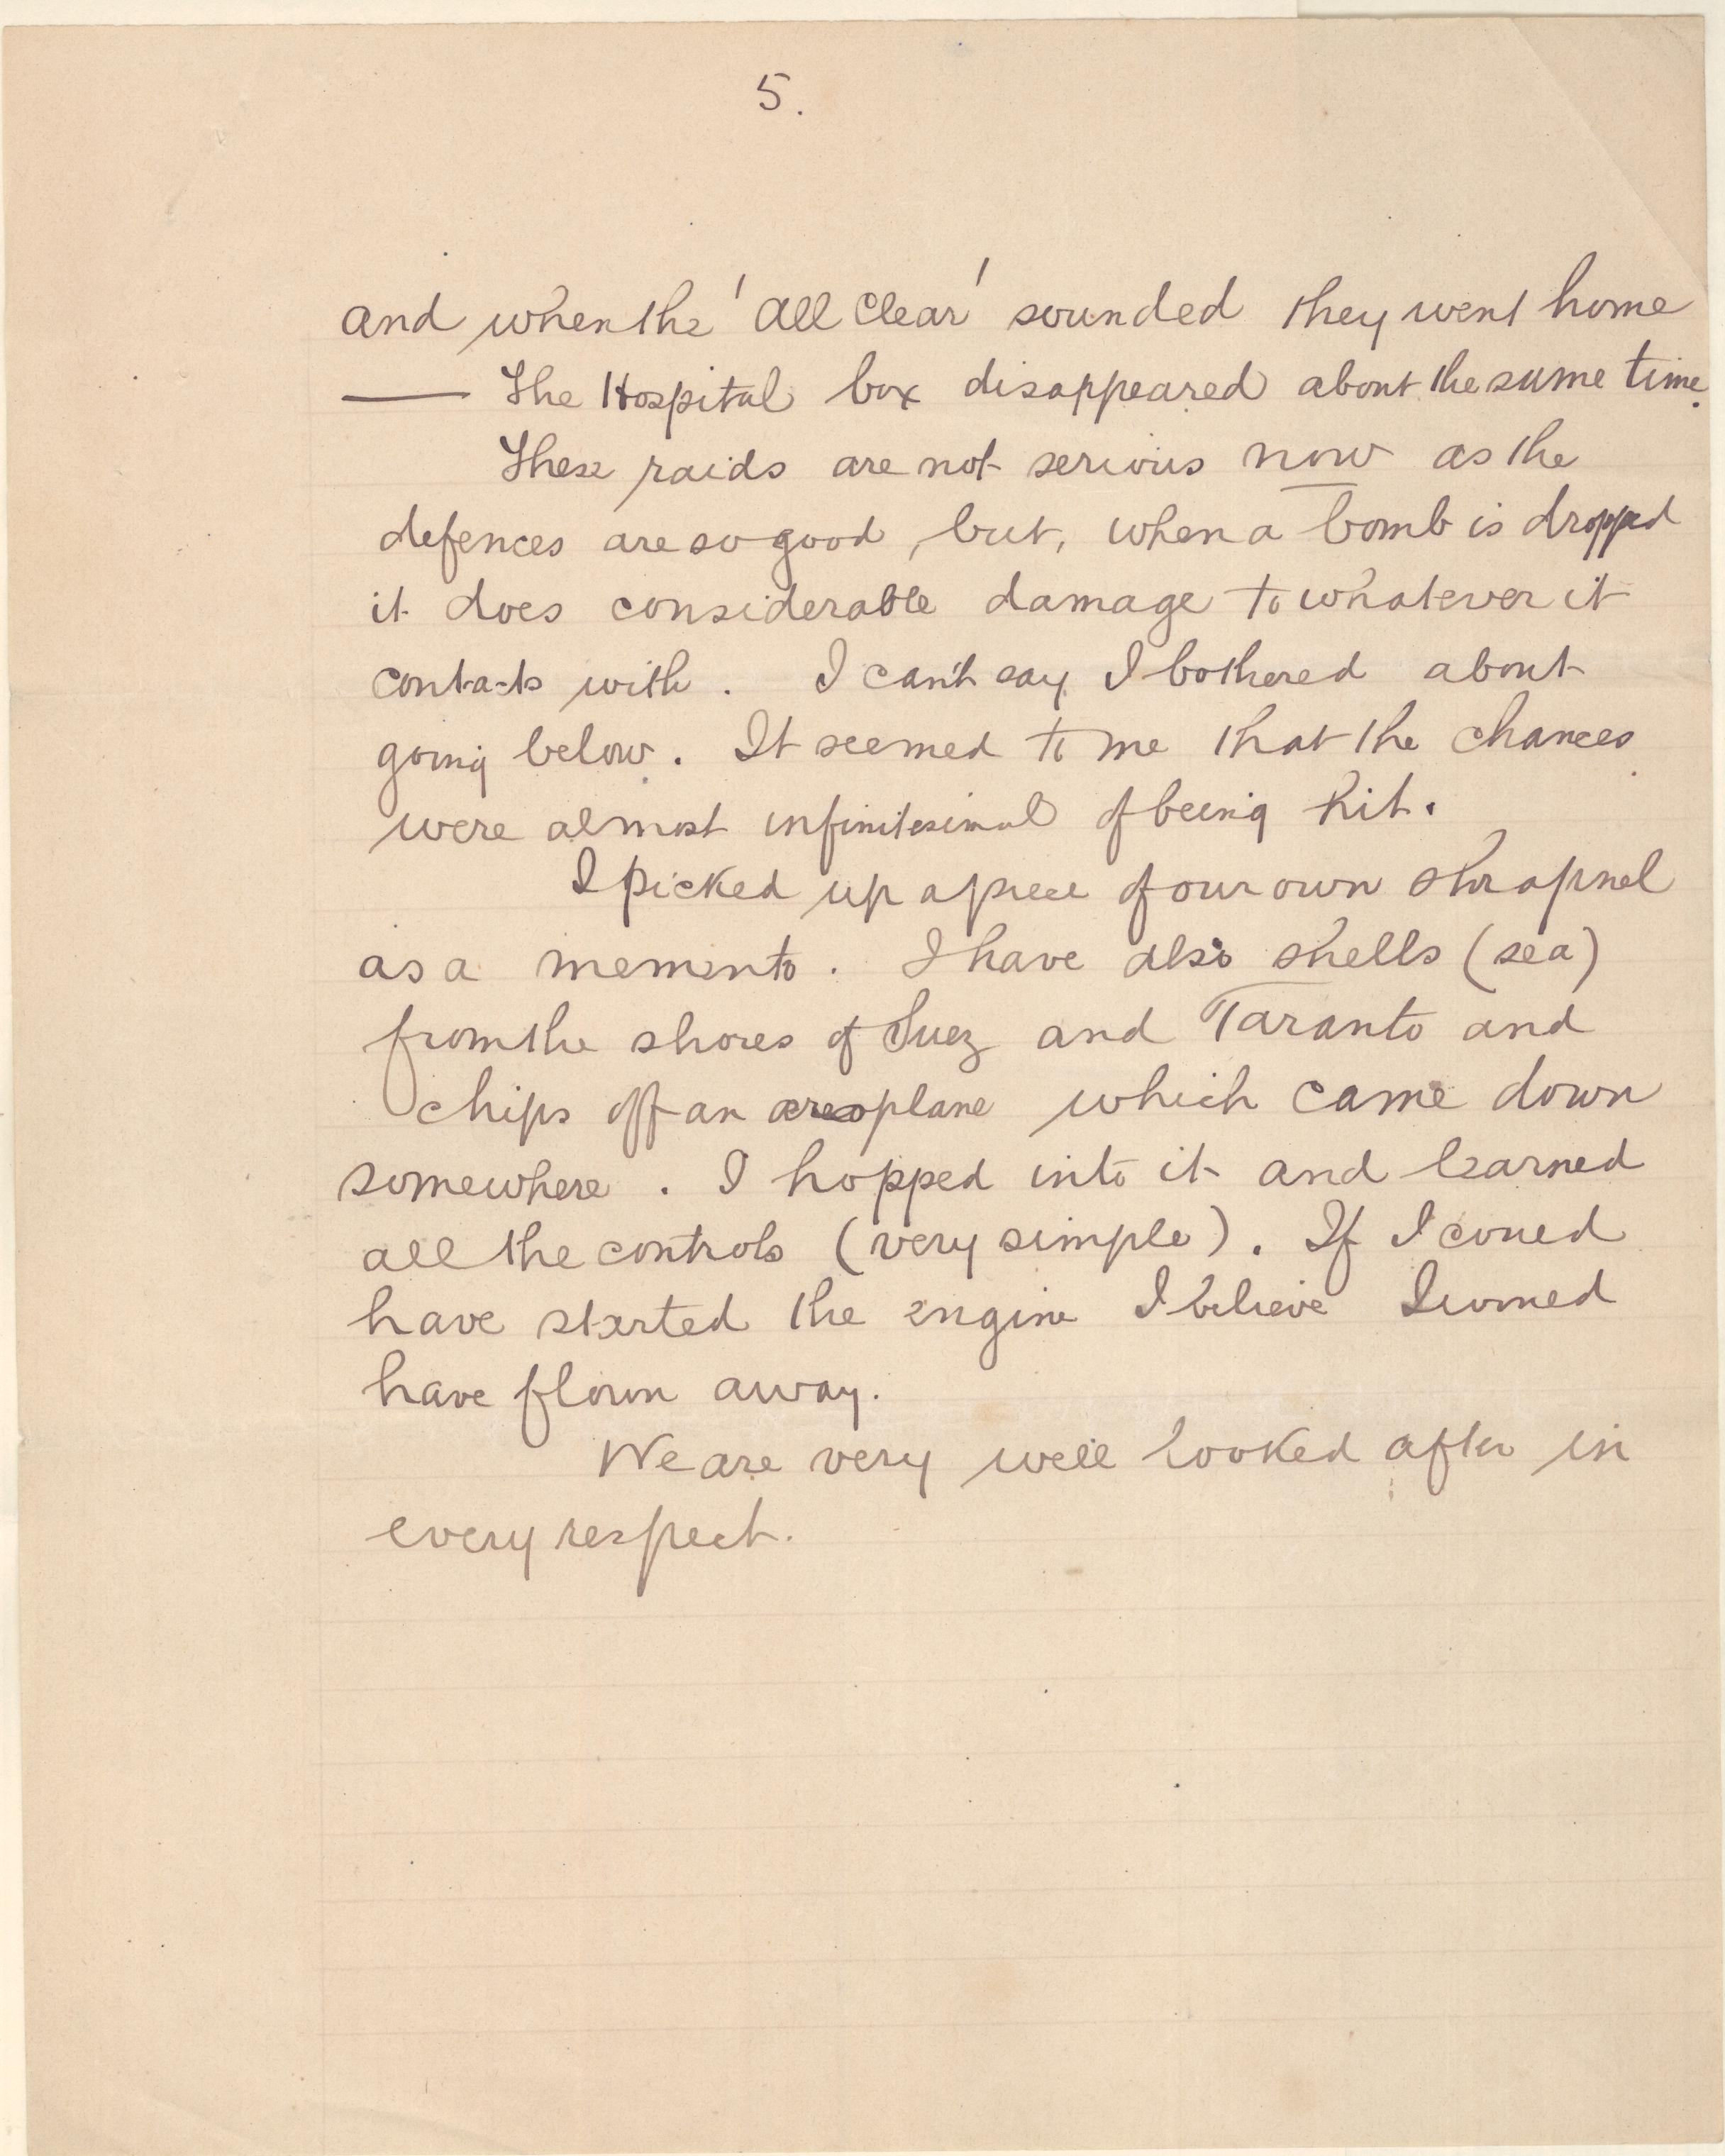 5.
and when the 'All Clear' sounded they went home
— The Hospital box disappeared about the same time.
These raids are not serious now as the
defences are so good, but, when a bomb is dropped
it does considerable damage to whatever it
contacts with. I can't say I bothered about
going below. It seemed to me that the chances
were almost infinitesimal of being hit.
I picked up a piece of our own shrapnel
as a memento. I have also shells (sea)
from the shores of Suez and Taranto and
chips off an areoplane which came down
somewhere. I hopped into it and learned
all the controls (very simple). If I could
have started the engine I believe I would
have flown away.
We are very well looked after in
every respect.